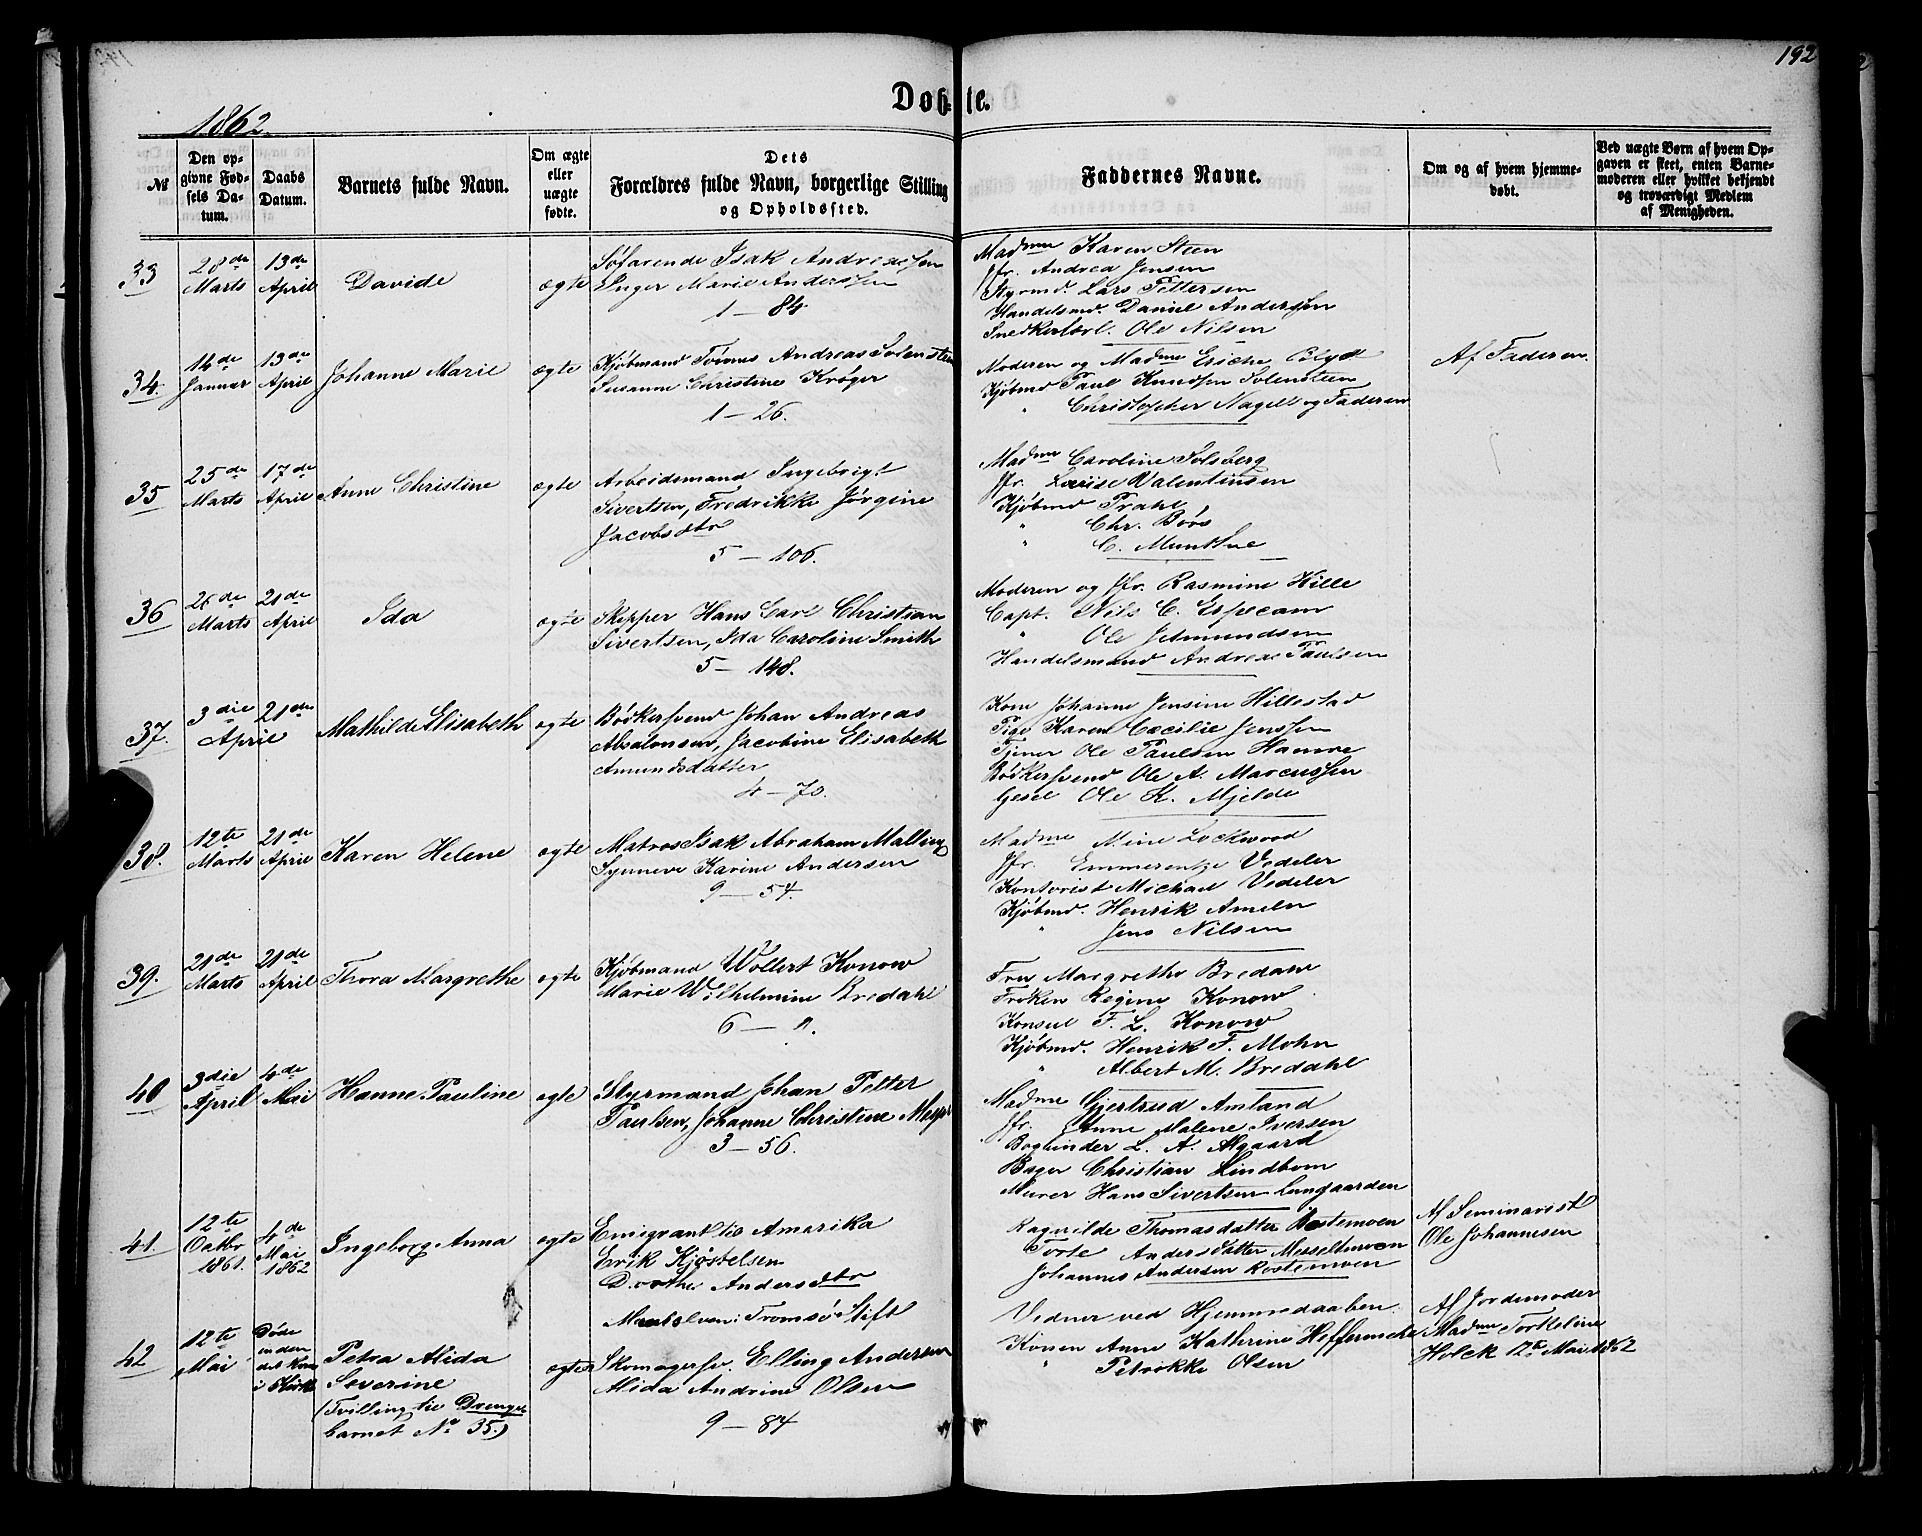 192
Døbte.
1862.
№
Den op-
givne Fød-
sels Da-
tum.
Daabs
Datum.
Barnets fulde Navn.
Om ægte
eller
uægte
fødte.
Dets
Forældres fulde Navn, borgerlige Stilling
og Opholdssted.
Faddernes Navne.
Om og af hvem hjemme-
døbt.
Ved uægte Børn af hvem Op-
gaven er skeet, enten Barne-
moderen eller hvilket bekjendt
og troværdigt Medlem
af Menigheden.
33
28de
Marts
13de
April
Davide
ægte
Søfarende Isak Andreassen
Inger Marie Anderssen
1 — 84.
Madme Karen Steen
Jfr. Andrea Jensen
Styrmd. Lars Pettersen
Handelsmd. Daniel Anderssen
Snedkerlærl. Ole Nilsen
34.
14de
Januar
13de
April
Johanne Marie
ægte
Kjøbmand Tørres Andreas Solensteen
Susanne Christine Krøger
1 — 26.
Moderen og Madme Eriche Blydt
Kjøbmd Paul Knudsen Solensteen
" Christopher Nagell og Faderen
Af Faderen.
35
25de
Marts
17de
April
Anne Christine
ægte
Arbeidsmand Ingebrigt
Sivertsen, Fredrikke Jørgine
Jacobsdtr
5 — 106.
Madme Caroline Solsberg
Jfr. Louise Valentinsen
Kjøbmd Prahl
" Chr. Børs
" C. Munthe
36
26de
Marts
21de
April
Ida
ægte
Skipper Hans Carl Christian
Sivertsen, Ida Caroline Smith
5 — 148.
Moderen og Jfr. Rasmine Hille
Capt. Nils C. Especam
" Ole J Amundsen
Handelsmand Andreas Paulsen
37.
3die
April
21de
Mathilde Elisabeth
ægte
Bødkersvend Johan Andreas
Absalonsen, Jacobine Elisabeth
Amundsdatter
4 — 70.
Kone Johanne Jensine Hillestad
Pige Karen Cæcilie Jenssen
Tjener Ole Paulsen Hamre
Bødkersvend Ole A. Marcussen
Gesel Ole K. Mjelde
38.
12te
Marts
21de
April
Karen Helene
ægte
Matros Isak Abraham Malling
Synneve Karine Andersen
9 — 54.
Madme Mine Lockwood
Jfr. Emmerentze Vedeler
Kontorist Michael Vedeler
Kjøbmd. Henrik Ameln
" Jens Nilsen
39.
21de
Marts
21de
April
Thora Margrethe
ægte
Kjøbmand Wollert Konow
Marie Wilhelmine Bredahl
Fru Margrethe Bredahl
Frøken Regine Konow
Konsul F. L. Konow
Kjøbmd. Henrik F. Mohn
" Albert M. Bredahl
40
3die
April
4de
Mai
Hanne Pauline
ægte
Styrmand Johan Petter
Paulsen, Johanne Christine Meyer
3 — 56.
Madme Gjertrud Amland
Jfr. Anne Malene Iversen
Bogbinder L. A. Algaard
Bager Christian Lindbom
Murer Hans Sivertsen Lungaarden
41.
12te
Octbr
1861.
4de
Mai
1862
Ingeborg Anna
ægte
Emigrant til Amerika
Erik Kjøstelsen
Dorthe Andersdtr
Maalselven i Tromsø Stift
Ragnilde Thomasdatter Rostemoen
Torle Andersdatter Messeltmoen
Johannes Andersen Rostemoen
Af Seminarist
Ole Johannesen
42
12te
Mai
Døde
inden
det kom
i Kirke
Petra Alida
Severine
(Tvilling til Drenge-
barnet No 35.)
ægte
Skomagersv. Elling Andersen
Alida Andrine Olsen
9 — 84
Vidner ved Hjemmedaaben.
Konen Anne Kathrine
" Petrikke Olsen
Af Jordemoder
Madme Torkeline
Holck 12te Mai 1862